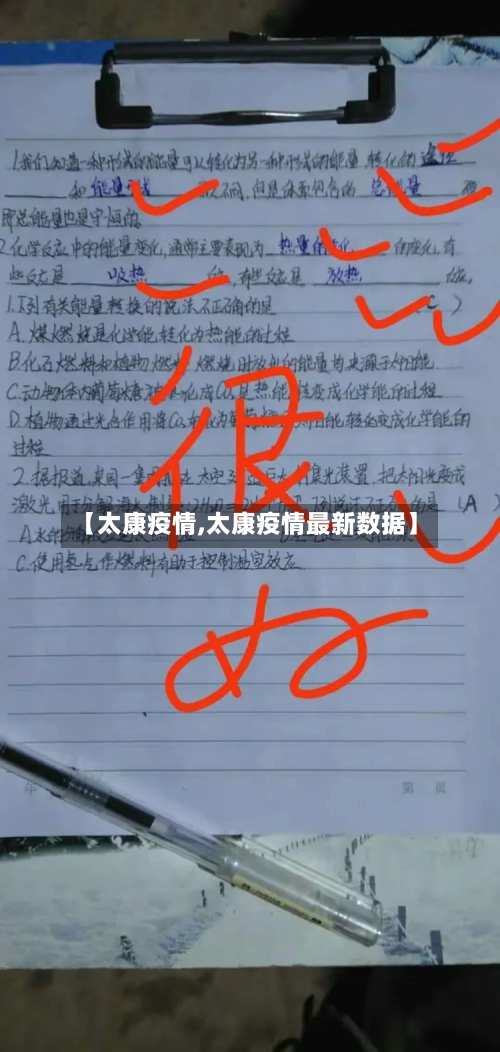 1.我们知道一种形式的能量可以转化为另一种形式的能量,转化的 途径
和 能量形式 可以不同,但是体系包含的 总能量 不
即总能量也是守恒的。
2.化学反应中的能量变化,通常主要表现为 热量的变化 的变化,有
些反应是 吸热 的,有些反应是 放热 的。
1.下列有关能量转换的说法不正确的是 ( C )
A.煤燃烧是化学能转化为热能的过程
B.化石燃料和植物燃料燃烧时放出的能量均来源于太阳能
C.动物体内葡萄糖被氧化成CO₂是热能转变成化学能的过程
D.植物通过光合作用将CO₂转化为葡萄糖是太阳能转变成化学能的
过程
很
2.据报道,某国一集团拟在太空建造巨大的集光装置,把太阳光变成
激光用于 ( A )
【太康疫情,太康疫情最新数据】
C.使用氢气作燃料有助于控制温室效应
好
年
第 页